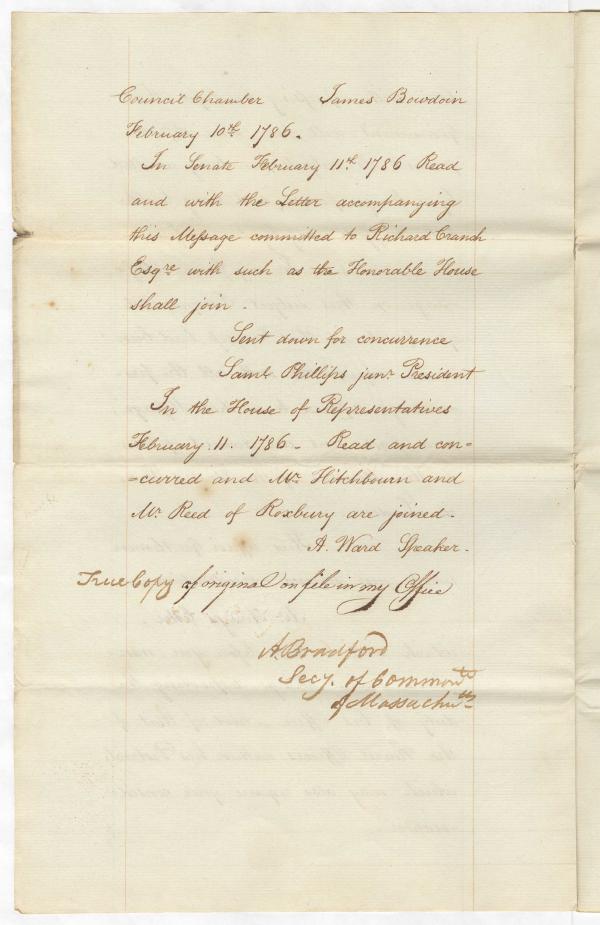 Council Chamber James Bowdoin
February 10th 1786.
In Senate February 11th 1786 Read
and with the Letter accompanying
this Meſsage committed to Richard Cranch
Esqre with such as the Honorable House
shall join.
Sent down for concurrence
Saml Phillips junr President
In the House of Representatives
February 11. 1786 - Read and con=
=curred and Mr Hitchbourn and
Mr Reed of Roxbury are joined.
A. Ward Speaker.
True Copy of original on file in my Office
A. Bradford
Secy. of Commonwth
of Massachutts